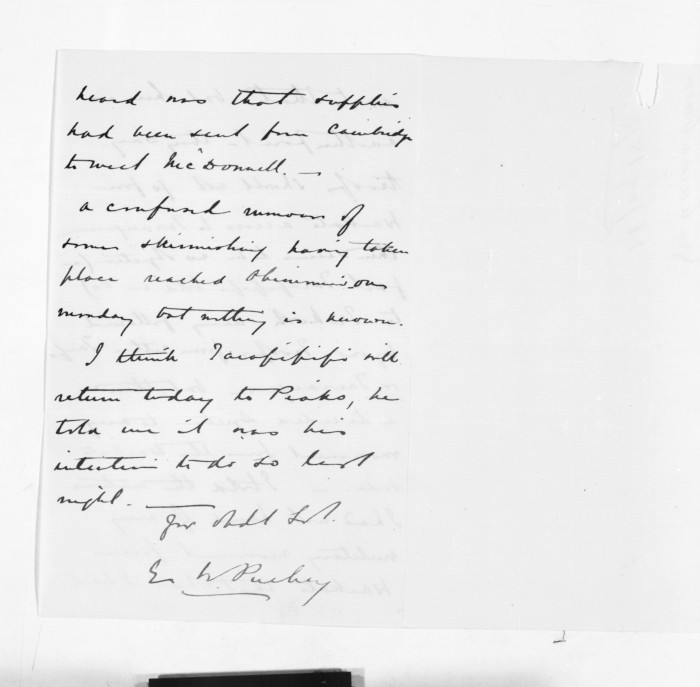 heard was that supplies
had been sent from Cambridge
to meet McDonnell. —
a confused rumour of
some skirmishing having taken
place reached Ohinemuri on
monday but nothing is known.
I think will
return today to Piako, he
told me it was his
intention to do so last
night. —
Yr Obdt Svt.
E W. Puckey